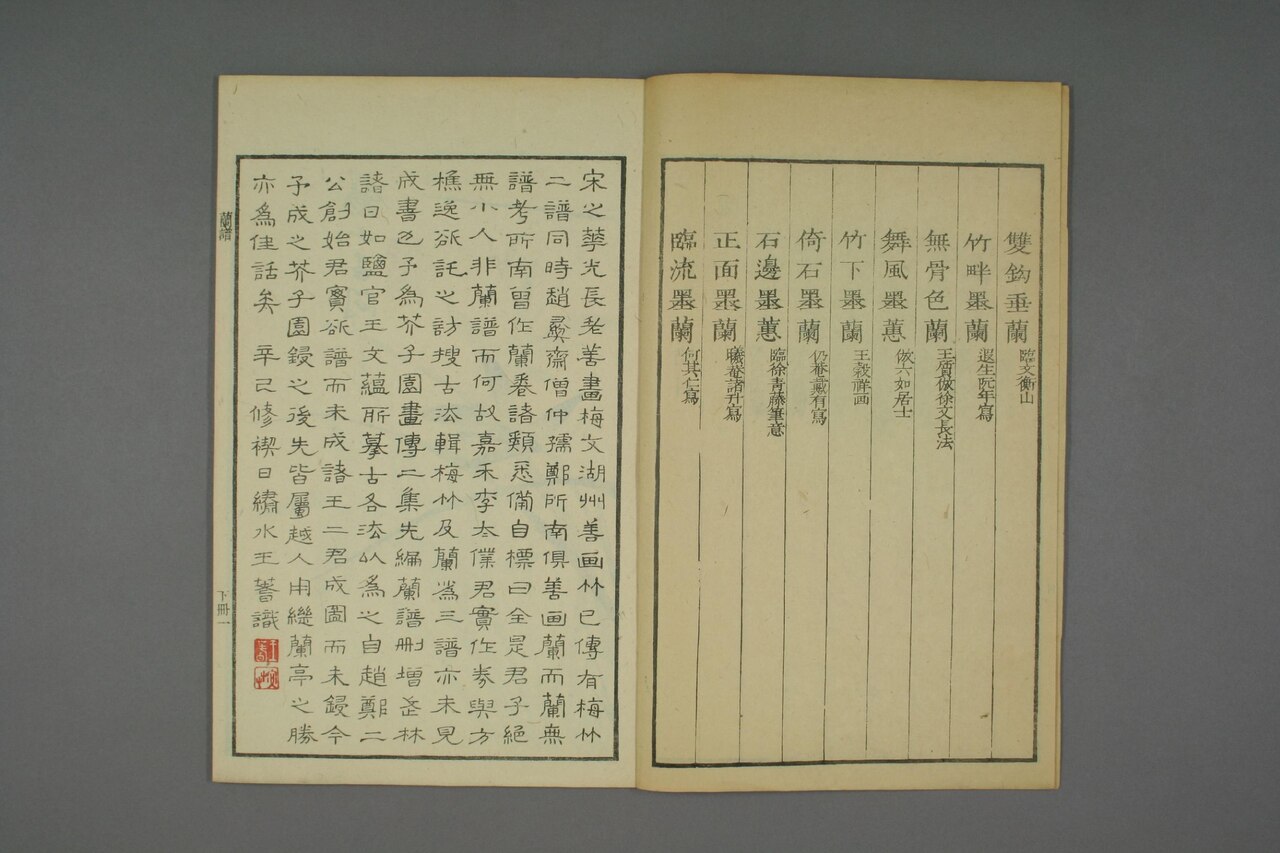 雙鈎垂蘭 臨文衡山
竹畔墨蘭 遐生阮年寫
無骨色蘭 王質倣徐文長法
舞風墨蕙 倣六如居士
竹下墨蘭 王榖祥画
倚石墨蘭 仍菴戴有寫
石邊墨蕙 臨徐青藤筆意
正面墨蘭 曦菴諸升寫
臨流墨蘭 何其仁寫
宋之華光長老善畫梅文湖州善画竹已傳有梅竹
二譜同時趙彛齋僧仲孺鄭所南俱善画蘭而蘭無
譜考所南曾作蘭卷諸類悉備自標曰全是君子絕
無小人非蘭譜而何故嘉禾李太僕君實作券與方
樵逸欲託之訪搜古法輯梅竹及蘭為三譜亦未見
成書也予為芥子園畫傳二集先編蘭譜刪增武林
諸曰如鹽官王文蘊所摹古各法以為之自趙鄭二
公創始君實欲譜而未成諸王二君成圖而未鋟今
予成之芥子園鋟之後先皆屬越人用繼蘭亭之勝
亦為佳話矣 辛巳修禊日繡水王蓍識
蘭譜
下冊一